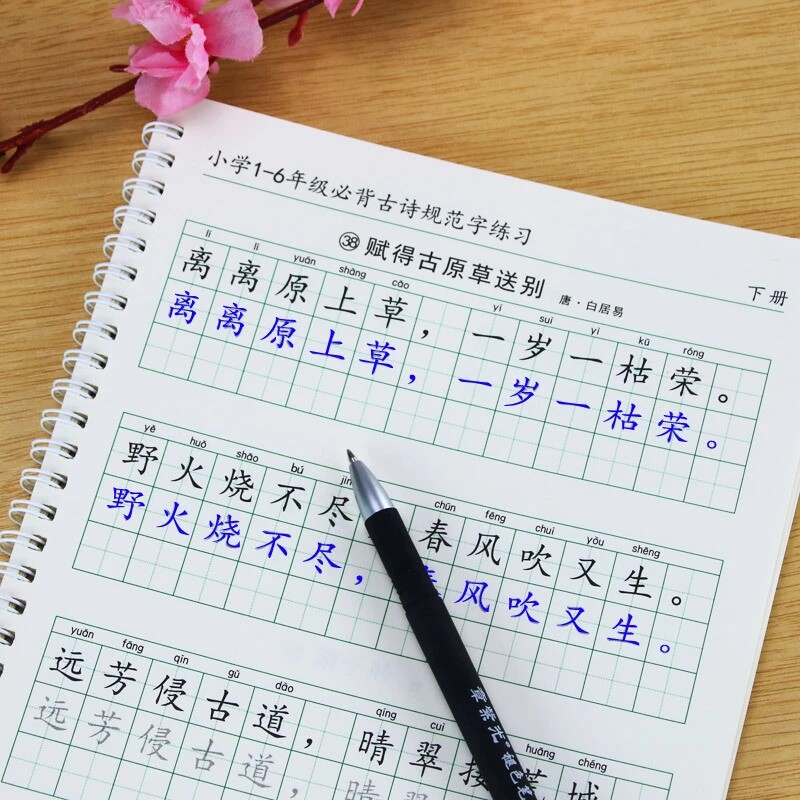 小学1-6年级必背古诗规范字练习
下册
㊳ 赋得古原草送别 唐·白居易
lí lí yuán shàng cǎo yí suì yì kū róng
离离原上草，一岁一枯荣。
离离原上草，一岁一枯荣。
yě huǒ shāo bú jìn chūn fēng chuī yòu shēng
野火烧不尽 春风吹又生。
野火烧不尽，春风吹又生。
yuǎn fāng qīn gǔ dào qíng cuì huāng chéng
远芳侵古道，晴翠接荒城
远芳侵古道，晴翠
章紫光 褪色笔